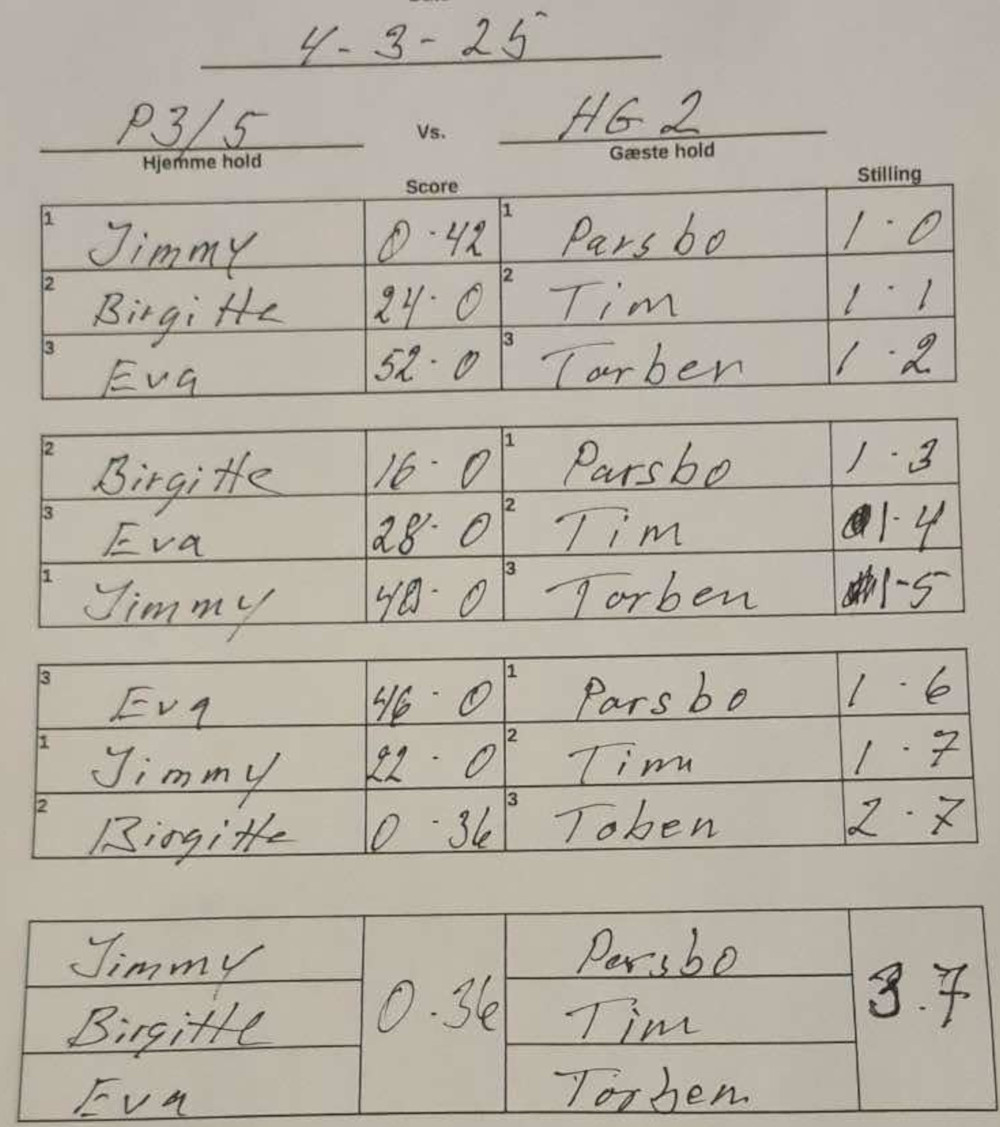 4-3-25
P3/5 Vs. HG 2
Hjemme hold Gæste hold
Score Stilling
1 Jimmy 0·42 1 Parsbo 1·0
2 Birgitte 24·0 2 Tim 1·1
3 Eva 52·0 3 Torben 1·2
2 Birgitte 16·0 1 Parsbo 1·3
3 Eva 28·0 2 Tim 1-4
1 Jimmy 48·0 3 Torben 1-5
3 Eva 46·0 1 Parsbo 1·6
1 Jimmy 22·0 2 Tim 1·7
2 Birgitte 0·36 3 Toben 2·7
Jimmy Parsbo
Birgitte 0·36 Tim 3.7
Eva Torben